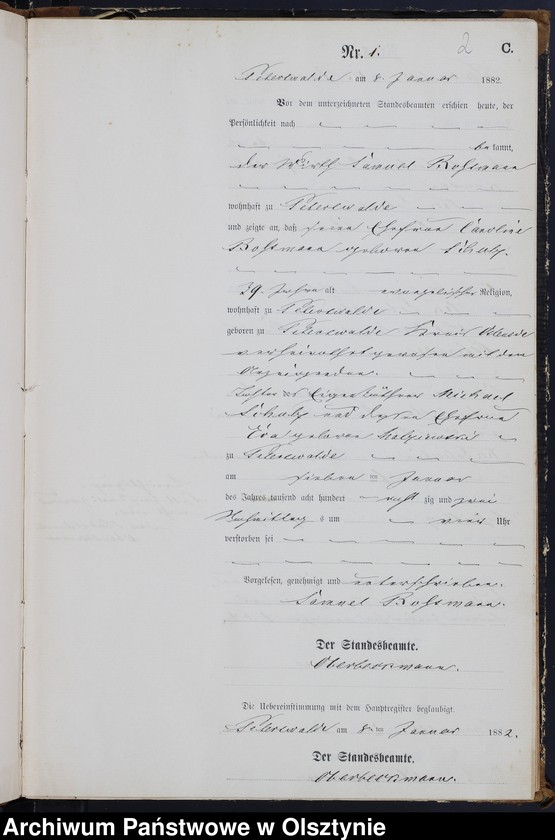 2 C.
Nr. 1.
Peterswalde am 8. Januar 1882.
Vor dem unterzeichneten Standesbeamten erschien heute, der
Persönlichkeit nach
bekannt,
der Wirth Samuel Roßmann
wohnhaft zu Peterswalde
und zeigte an, daß seine Ehefrau Caroline
Roßmann geborene Schulz.
39. Jahre alt evangelischer Religion,
wohnhaft zu Peterswalde
geboren zu Peterswalde Kreis Osterode
verheirathet gewesen mit dem
Anzeigenden.
Tochter des Eigenkäthner Michael
Schulz und dessen Ehefrau
Eva geborene
zu Peterswalde
am sieben ten Januar
des Jahres tausend acht hundert acht zig und zwei
Nachmittags um vier Uhr
verstorben sei
Vorgelesen, genehmigt und unterschrieben.
Samuel Roßmann.
Der Standesbeamte.
Oberbeckmann.
Die Uebereinstimmung mit dem Hauptregister beglaubigt.
Peterswalde am 8. ten Januar 1882.
Der Standesbeamte.
Oberbeckmann.
Archiwum Państwowe w Olsztynie